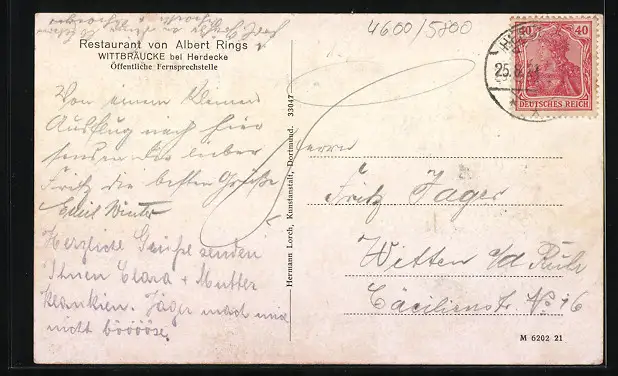 4600/5800
Restaurant von Albert Rings
WITTBRÄUCKE bei Herdecke
Öffentliche Fernsprechstelle
Von einem kleinen
Ausflug nach hier
senden Dir lieber
Fritz die besten Grüße
Emil Winter
Herzliche Grüße senden
Ihnen Clara + Mutter
Jäger mach mir
nicht bööööse.
Hermann Lorch, Kunstanstalt, Dortmund. 33047
40 40
DEUTSCHES REICH
25.8.21
Herrn
Fritz Jäger
Witten a/d Ruhr
Cäcilienstr. No 16
M 6202 21